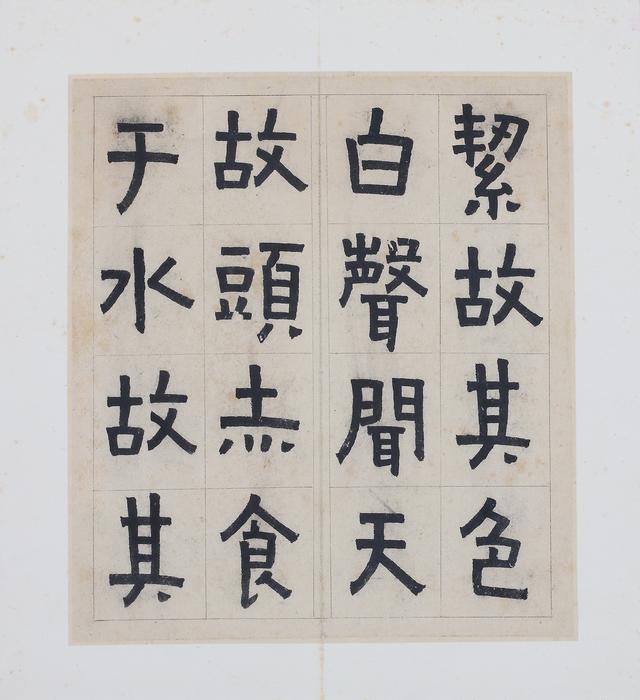 絜故其色
白聲聞天
故頭赤食
于水故其